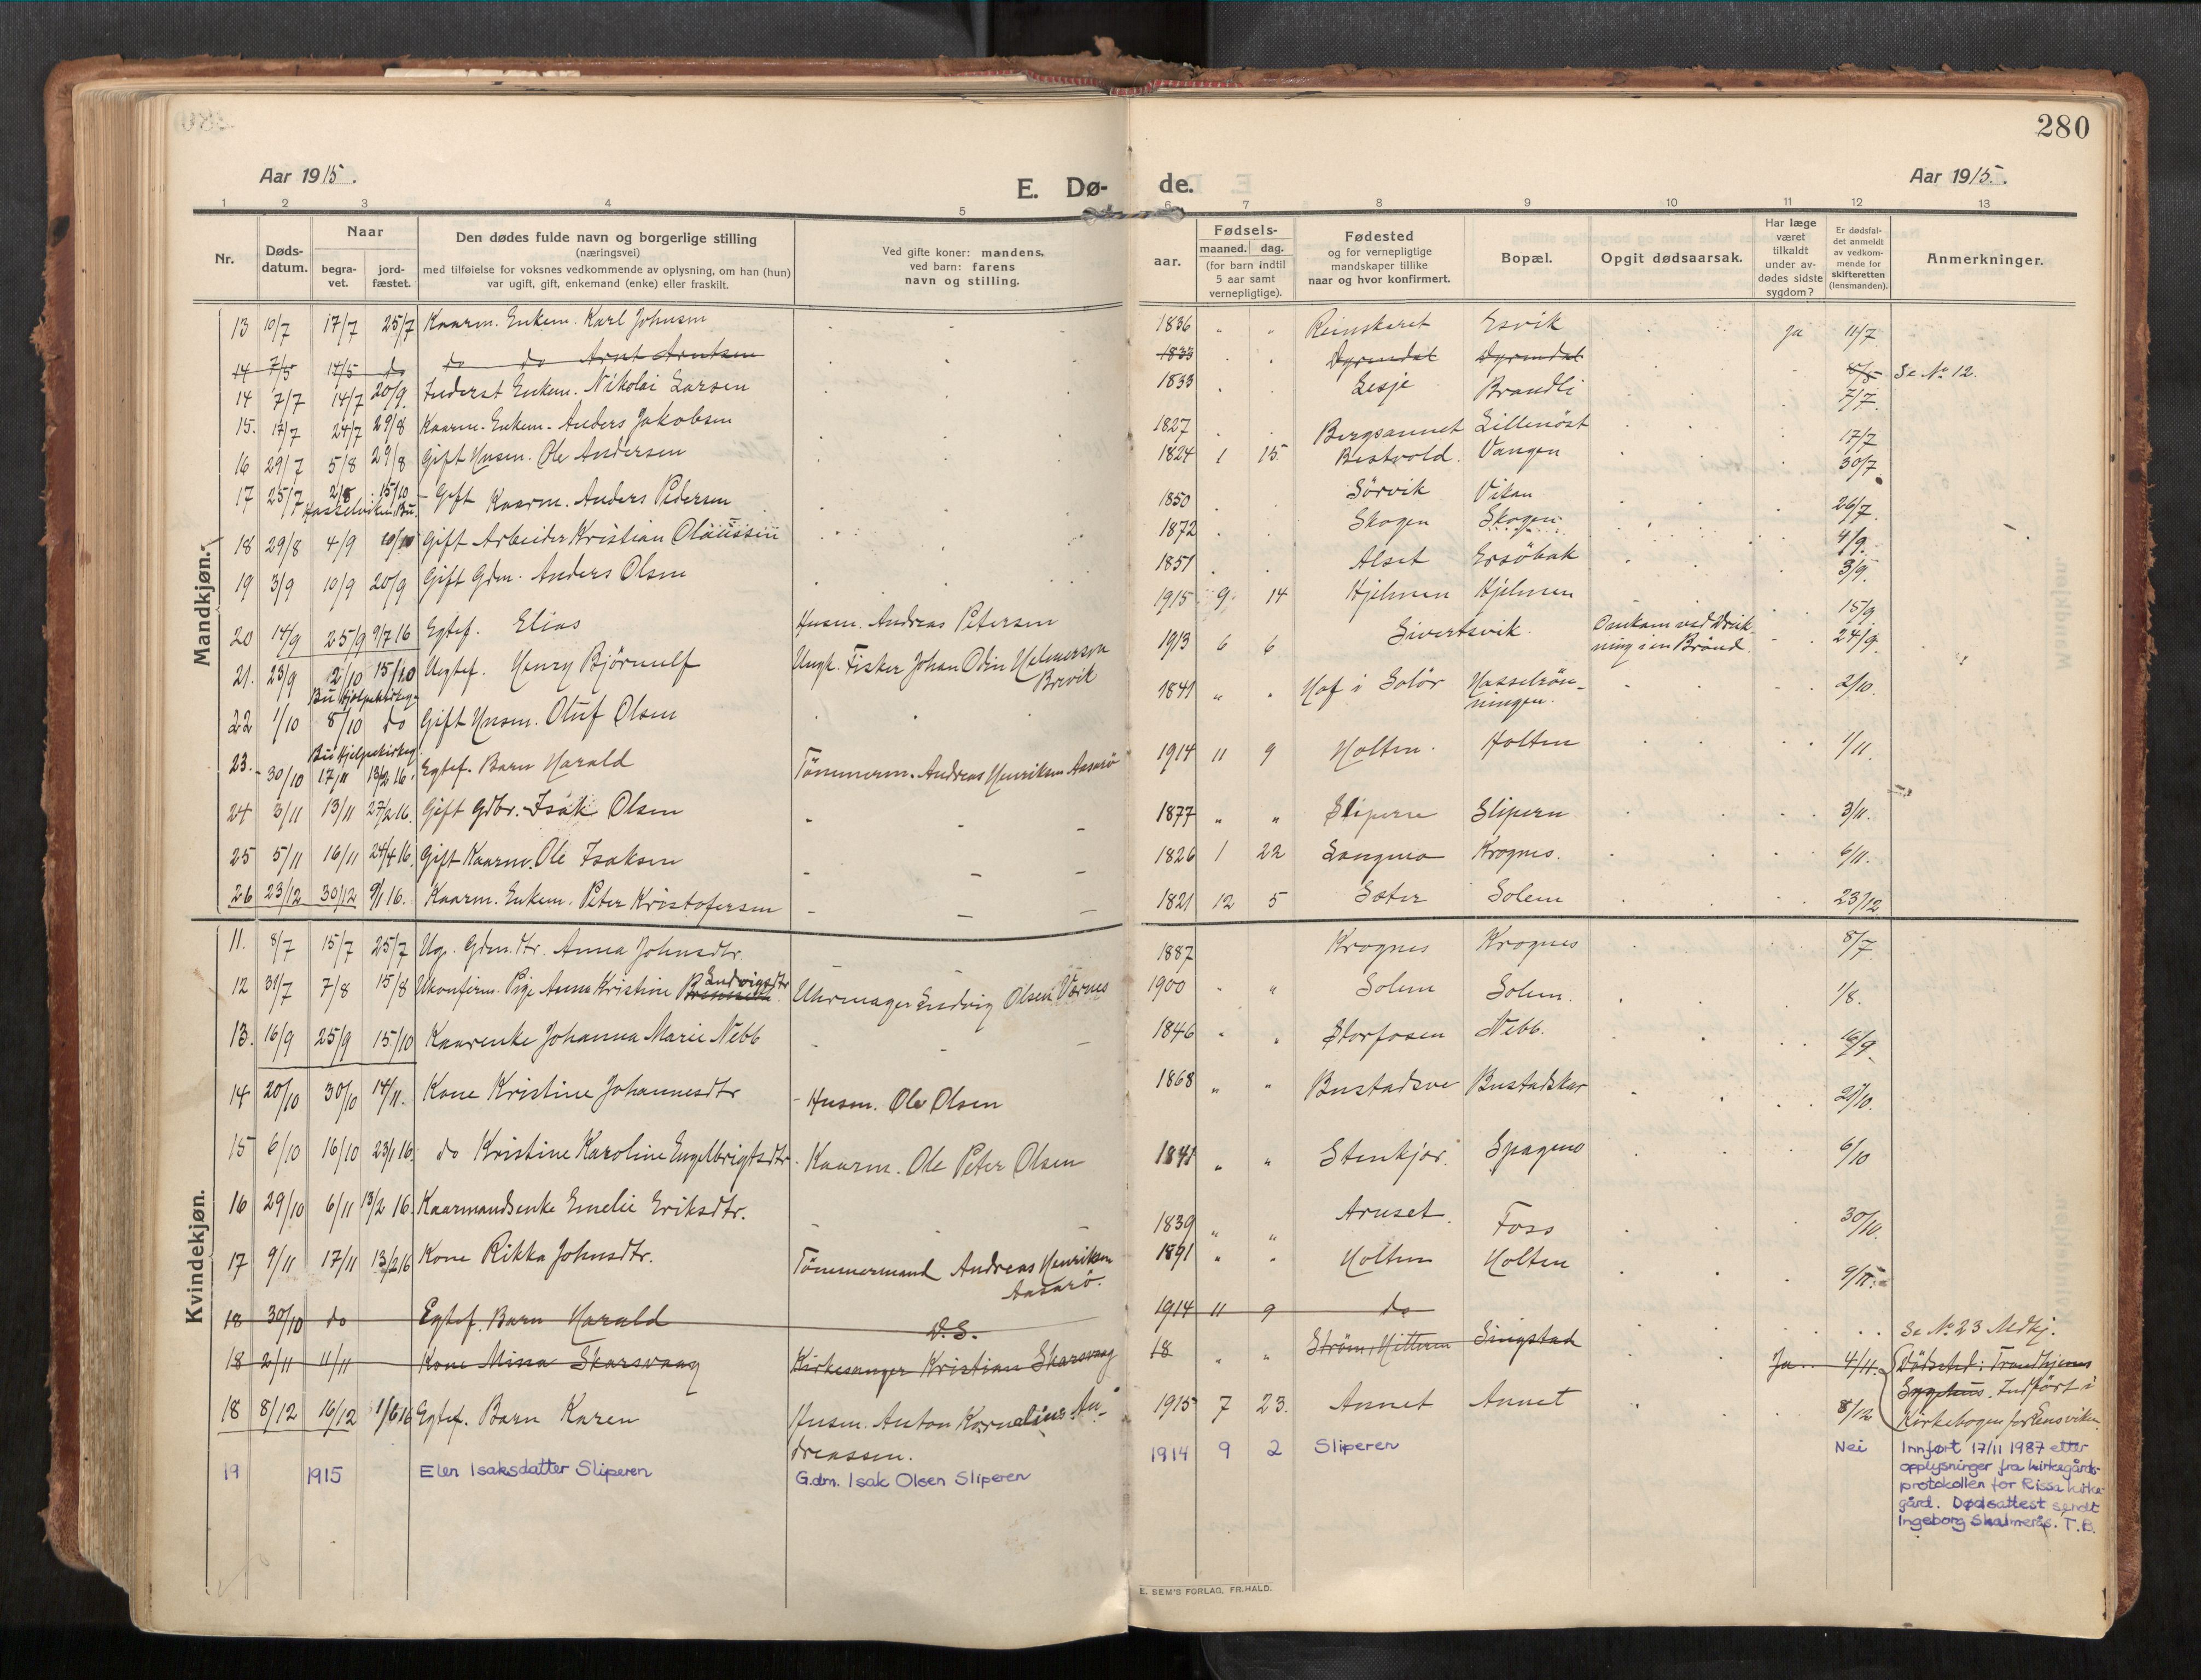 280
Aar 1915.
E. Dø-
de.
Aar 1915.
1 2 3 4 5 6 7 8 9 10 11 12 13
Nr.
Døds-
datum.
Naar
begra-
vet.
jord-
fæstet.
Den dødes fulde navn og borgerlige stilling
(næringsvei)
med tilføielse for voksnes vedkommende av oplysning, om han (hun)
var ugift, gift, enkemand (enke) eller fraskilt.
Ved gifte koner: mandens,
ved barn: farens
navn og stilling.
aar.
Fødsels-
maaned. dag.
(for barn indtil
5 aar samt
vernepligtige).
Fødested
og for vernepligtige
mandskaper tillike
naar og hvor konfirmert.
Bopæl.
Opgit dødsaarsak.
Har læge
været
tilkaldt
under av-
dødes sidste
sygdom?
Er dødsfal-
det anmeldt
av vedkom-
mende for
skifteretten
(lensmanden).
Anmerkninger.
Mandkjøn.
13 10/7 17/7 25/7 Kaarm. Enkem. Karl Johnsen 1836 " " Reinskaret Esvik Ja 11/7
14 7/5 14/5 do do do Arnt Arntsen 1833 Dyrendal Dyrendal 8/5 Se No 12.
14 7/7 14/7 20/9 Inderst Enkem. Nikolai Larsen 1833 Lesje Brandli 7/7.
15. 17/7 24/7 29/8 Kaarm. Enkem. Anders Jakobsen 1827 Bergsaunet Lillenöst 17/7
16 29/7 5/8 29/8 Gift Husm. Ole Andersen 1824 1 15 Bestvold. Vangen 30/7
17 25/7 2/8 15/10 Gift Kaarm. Anders Pedersen 1850 Sörvik Vikan 26/7
Hasselviken Bu.
18 29/8 4/9 10/10 Gift Arbeider Kristian Olaussen 1872 Skogen Skogen 4/9.
19 3/9 10/9 20/9 Gift Gdm. Anders Olsen 1851 Alset Ersöbak 3/9.
20 14/9 25/9 9/7 16 Egtef. Elias Husm. Andreas Petersen 1915 9 14 Hjelmen Hjelmen 15/9
21. 23/9 2/10 15/10 Uegtef. Henry Bjørnulf Ungk. Fisker Johan Odin Helmerson
Brevik 1913 6 6 Sivertsvik. Omkom ved Druk-
ning i en Brönd. 24/9.
Bu Hjelpekirkeg.
22 1/10 8/10 do Gift Husm. Oluf Olsen 1841 " " Hof i Solör Hasselrön-
ningen. 2/10.
Bu Hjelpekirkeg
23. 30/10 17/11 13/2 16. Egtef. Barn Harald Tömmerm. Andreas Henriksen Aasarö 1914 11 9 Holten. Holten 1/11.
24 3/11 13/11 27/2 16. Gift Gdbr. Isak Olsen 1877 " " Sliperen Slipern 3/11.
25 5/11 16/11 24/4 16. Gift Kaarm. Ole Isaksen 1826 1 22 Krognes. 6/11.
26 23/12 30/12 9/1 16. Kaarm. Enkem. Peter Kristofersen 1821 12 5 Sæter Solem 23/12
Kvindekjøn.
11. 8/7 15/7 25/7 Ug. Gdm.dtr. Anna Johnsdtr. 1887 Krognes Krognes 8/7
12 31/7 7/8 15/8 Ukonfirm. Pige Anna Kristine Ludvigsdtr Uhrmager Ludvig Olsen Vornes 1900 " " Solem Solem. 1/8.
13. 16/9 25/9 15/10 Kaarenke Johanna Marie Nebb 1846 " " Storfosen Nebb. 16/9.
14 20/10 30/10 14/11. Kone Kristine Johannesdtr Husm. Ole Olsen 1868 " " Bustadsve Bustadskar 21/10.
15 6/10 16/10 23/1 16. do Kristine Karoline Engelbrigtsdtr Kaarm. Ole Peter Olsen 1841 " " Stenkjær. 6/10
16 29/10 6/11 13/2 16 Kaarmandsenke Emelie Eriksdtr. 1839 " " Aruset. Foss 30/10.
17 9/11 17/11 13/2 16 Kone Rikka Johnsdtr. Tömmermand Andreas Henriksen
Aasarö. 1891 " " Holten Holten 9/11.
18 30/10 do Egtef. Barn Harald D.S. 1914 11 9 do Se No 23 Mdkj.
18 2/11 11/11 Kone Mina Skarsvaag Kirkesanger Kristian Skarsvaag 18 " " Ström, Hitteren Singstad Ja 4/11. Dödssted: Trondhjems
Sygehus. Indført i
Kirkebogen for Stensviken
18 8/12 16/12 1/6 16 Egtef. Barn Karen Husm. Anton Kornelius An-
dreassen. 1915 7 23. Annet Annet 8/12
19 1915 Elen Isaksdatter Sliperen G.dm. Isak Olsen Sliperen 1914 9 2 Sliperen Nei Innført 17/11 1987 etter
opplysninger fra kirkegårds-
protokollen for Rissa kirke-
gård. Dødsattest sendt
Ingeborg Skalmerås. T.B.
E. SEM'S FORLAG, FR.HALD.